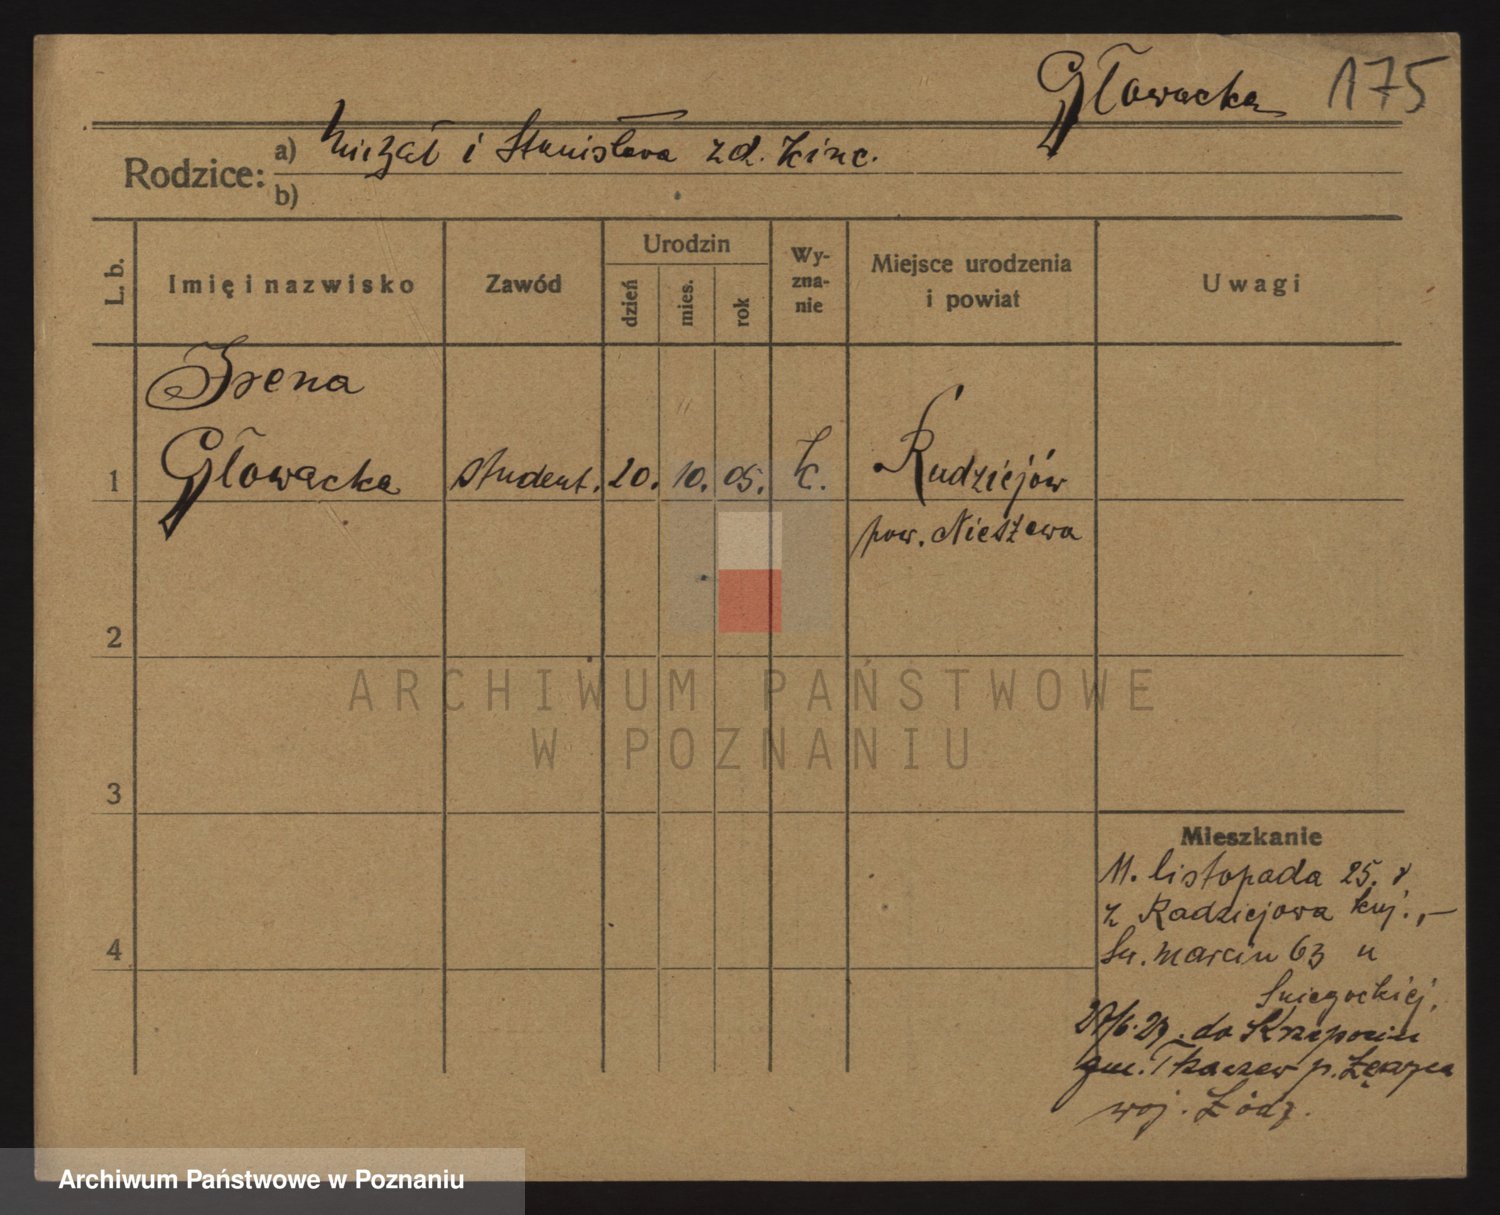 Głowacka 175
Rodzice:
a) Michał i Stanisława zd. Kinc.
b)
L. b.
Imię i nazwisko
Zawód
Urodzin
dzień
mies.
rok
Wy-
zna-
nie
Miejsce urodzenia
i powiat
Uwagi
Irena
1 Głowacka student. 20. 10. 05. k. Rudziejów
pow. Nieszawa
2
3
4
Mieszkanie
11. listopada 25. r
z Radziejowa kuj.,—
Św. Marcin 63 u
Śniegockiej.
do Krzepocin
gm. Tkaczew p. Łęczyca
woj. Łódz.
ARCHIWUM PAŃSTWOWE
W POZNANIU
Archiwum Państwowe w Poznaniu